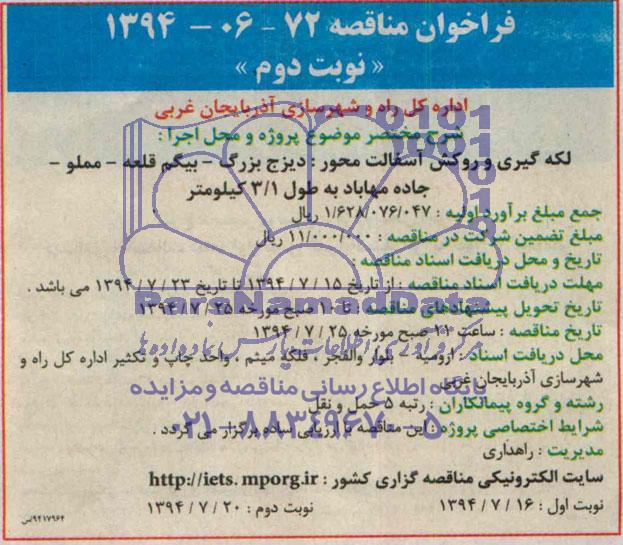 فراخوان مناقصه ۷۲ - ۰۶ - ۱۳۹۴
« نوبت دوم »
اداره کل راه و شهرسازی آذربایجان غربی
شرح مختصر موضوع پروژه و محل اجرا :
لکه گیری و روکش آسفالت محور : دیزج بزرگ - بیگم قلعه - مملو -
جاده مهاباد به طول ۳/۱ کیلومتر
جمع مبلغ برآورد اولیه : ۱/۶۲۸/۰۷۶/۰۴۷ ریال
مبلغ تضمین شرکت در مناقصه : ۱۱/۰۰۰/۰۰۰ ریال
تاریخ و محل دریافت اسناد مناقصه :
مهلت دریافت اسناد مناقصه : از تاریخ ۱۵ / ۷ / ۱۳۹۴ تا تاریخ ۲۳ / ۷ / ۱۳۹۴ می باشد .
تاریخ تحویل پیشنهادهای مناقصه : تا ۱۰ صبح مورخه ۲۵ / ۷ / ۱۳۹۴
تاریخ مناقصه : ساعت ۱۱ صبح مورخه ۲۵ / ۷ / ۱۳۹۴
محل دریافت اسناد : ارومیه - بلوار والفجر ، فلکه میثم ، واحد چاپ و تکثیر اداره کل راه و
شهرسازی آذربایجان غربی
رشته و گروه پیمانکاران : رتبه ۵ حمل و نقل
شرایط اختصاصی پروژه : این مناقصه با ارزیابی ساده برگزار می گردد .
مدیریت : راهداری
سایت الکترونیکی مناقصه گزاری کشور : http://iets.mporg.ir
نوبت اول : ۱۶ / ۷ / ۱۳۹۴ نوبت دوم : ۲۰ / ۷ / ۱۳۹۴
۹۴۱۷۹۶۴/س
ParsNamadData
مرکز فرآوری اطلاعات پارس نماد داده ها
پایگاه اطلاع رسانی مناقصه و مزایده
۰۲۱-۸۸۳۴۹۶۷۰-۵